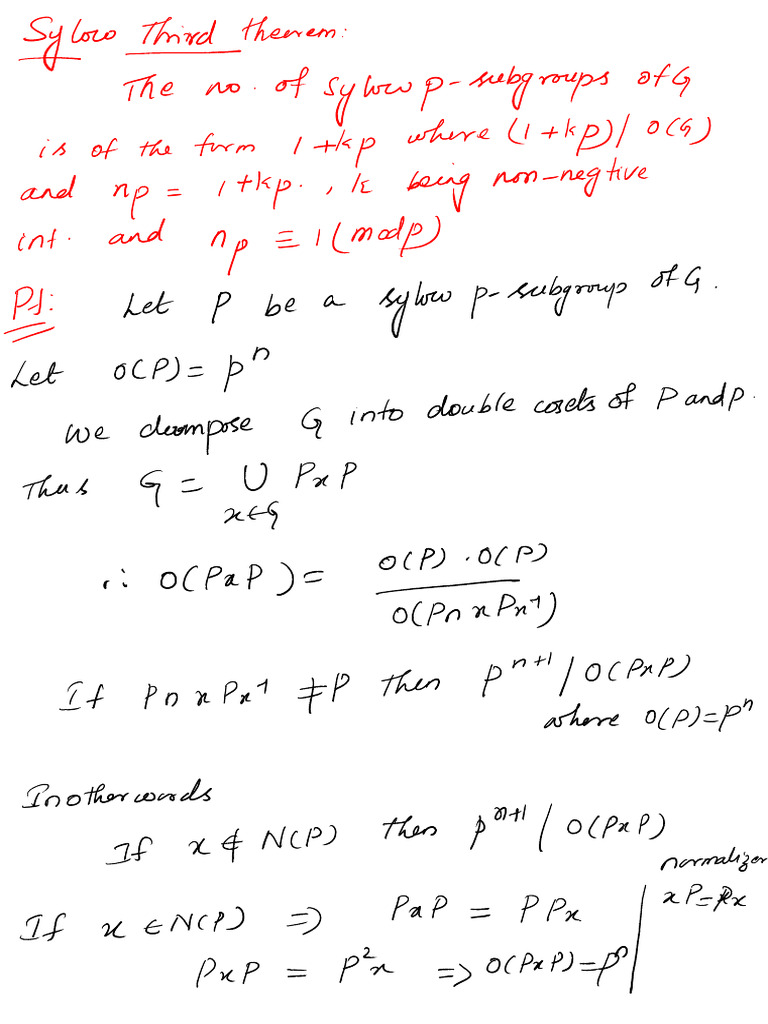 Sylow Third theorem:
The no. of sylow p-subgroups of G
is of the form 1+kp where (1+kp)/ O(G)
and np = 1+kp. , k being non-negtive
int. and np ≡ 1(modp)
Pf: Let P be a sylow p-subgroup of G.
Let O(P) = p^n
We decompose G into double cosets of P and P.
Thus G = ∪ PxP
x∈G
∴ O(PxP) = O(P) . O(P)
O(P∩xPx^-1)
If P∩xPx^-1 ≠ P then p^n+1 / O(PxP)
where O(P)=p^n
In other words
If x ∉ N(P) then p^n+1 / O(PxP)
normalizer
If x ∈ N(P) => PxP = PPx | xP=Px
PxP = P^2x => O(PxP)=p^n